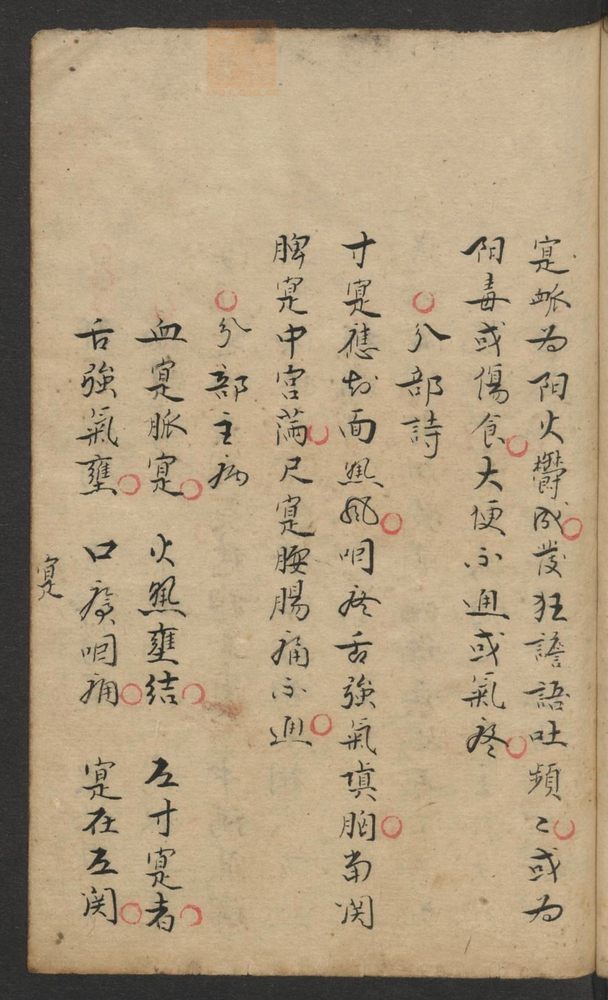 寔脈为阳火欝成發狂譫語吐頻〻或为
阳毒或傷食大便不通或氣疼
分部詩
寸寔應知面熱風咽疼舌強氣填胸當関
脾寔中宮滿尺寔腰腸痛不通
分部主病
血寔脈寔 火熱壅結 左寸寔者
舌強氣壅 口瘡咽痛 寔在左関
寔